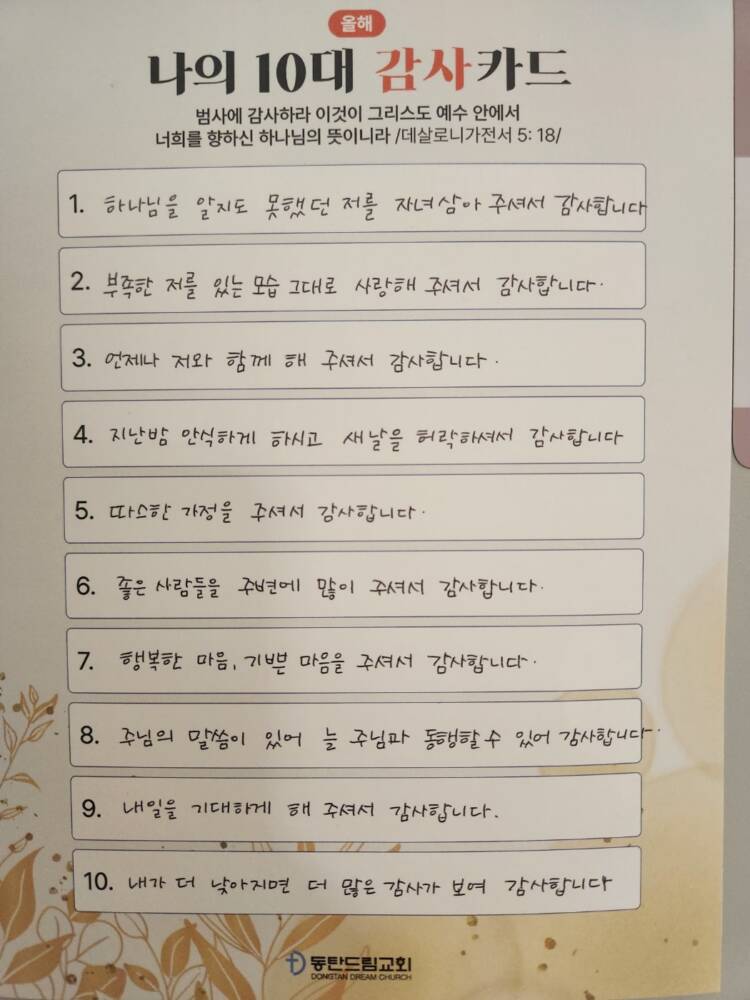 올해
나의 10대 감사카드
범사에 감사하라 이것이 그리스도 예수 안에서
너희를 향하신 하나님의 뜻이니라 /데살로니가전서 5: 18/
1. 하나님을 알지도 못했던 저를 자녀삼아 주셔서 감사합니다
2. 부족한 저를 있는 모습 그대로 사랑해 주셔서 감사합니다.
3. 언제나 저와 함께 해 주셔서 감사합니다.
4. 지난밤 안식하게 하시고 새날을 허락하셔서 감사합니다
5. 따스한 가정을 주셔서 감사합니다.
6. 좋은 사람들을 주변에 많이 주셔서 감사합니다.
7. 행복한 마음, 기쁜 마음을 주셔서 감사합니다.
8. 주님의 말씀이 있어 늘 주님과 동행할 수 있어 감사합니다.
9. 내일을 기대하게 해 주셔서 감사합니다.
10. 내가 더 낮아지면 더 많은 감사가 보여 감사합니다
동탄드림교회
DONGTAN DREAM CHURCH